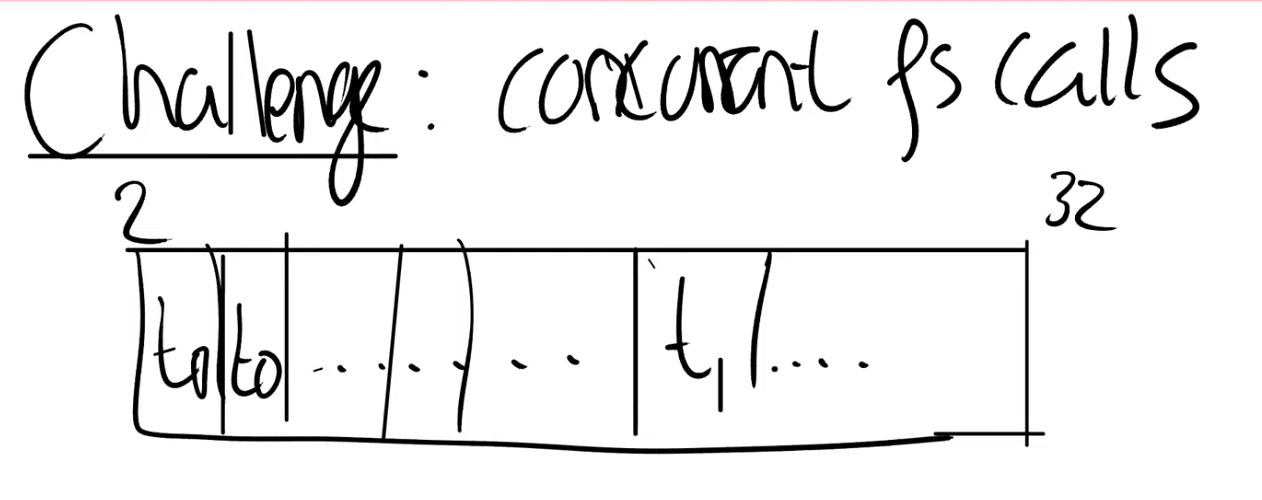 Challenge: concurrent fs calls
2 32
t0 t0 ....... t1 ....